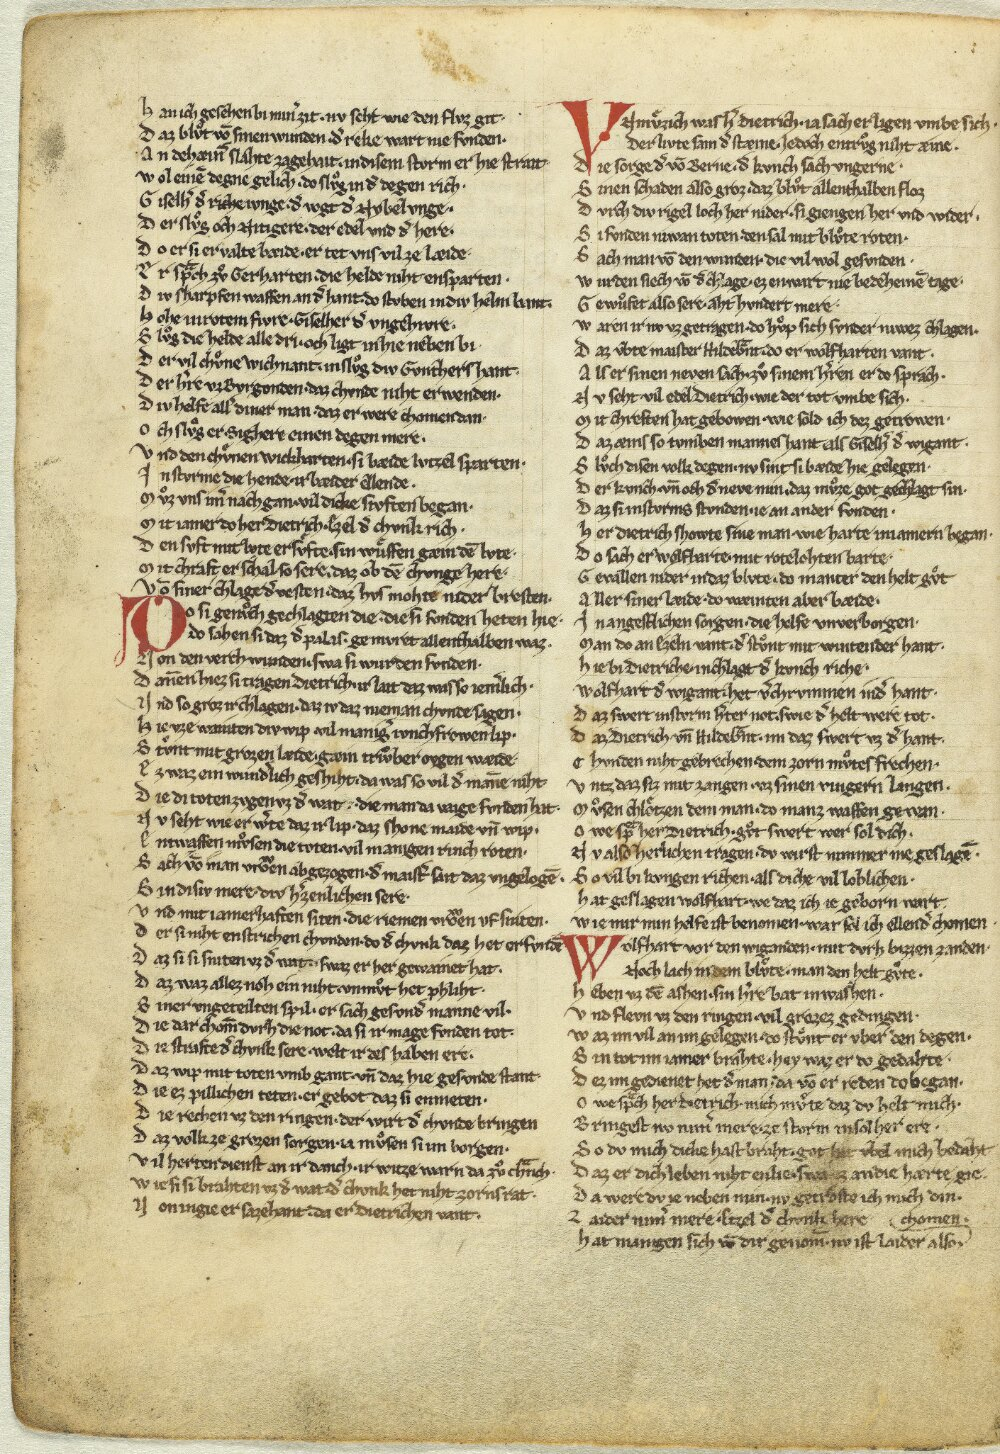 H an ich gesehen bi miner zit · nv seht wie den flvz git ·
D az blv̊t vō sinen wunden · d᾽ reke wart nie fonden ·
A n dehæim slahte zagehait · in disem storm er hie strait
W ol einē degne gelich · do slv̊g in d᾽ degen rich ·
G iselh᾽ d᾽ riche ivnge · d᾽ vogt d᾽ Nybelvnge ·
D er slv̊g och Rvtigere · der edel vnd d᾽ here ·
D o er si ervalte bæide · er tet vns vil ze læide ·
E r sp̄ch zv̊ Gerharten · die helde niht ensparten ·
D iv sharpfen waffen an d᾽ hant · do stvben in div helm bant ·
H ohe in rotem fivre · Giselher d᾽ vngehivre ·
S lv̊g die helde alle dri · och ligt in hie neben bi
D er vil chv̊ne Wichnant · in slv̊g div Gvnthers hant ·
D er h᾽re vz Bvrgonden · daz chvnde niht erwenden ·
D iv helfe all᾽ diner man · daz er were chomen dan ·
O ch slv̊g er Sighere einen degen mere ·
V nd den chv̊nen Wickharten · si bæide lvtzel sparten ·
I n stvrme die hende · ir bæider ellende ·
M v̊z vns im᾽ nach gan · vil dicke svften began ·
M it iamer do her Dietrich · Ezel d᾽ chvnk rich ·
D en svft mit lvte ersvfte · sin wv̊ffen gæin dē lvte ·
M it chraft er schal so sere · daz ob dē chvnge here ·
V ō siner chlage d᾽ vesten · daz hvs mohte nider bresten ·
D o si genv̊ch gechlagten die · die si fonden heten hie ·
do sahen si daz d᾽ palas · gemvret allenthalben waz ·
V on den verch wunden · swa si wurden fonden ·
D annen hiez si tragen Dietrich · ir lait daz was so iem᾽lich ·
V nd so groz ir chlagen · daz iv daz nieman chvnde sagen ·
H ie vze wainten div wip · vil manig᾽ ivnchfrowen lip ·
S tv̊nt mit grozen læide · gæin trv̊ber ovgen wæide ·
E z waz ein wund᾽lich geshiht · da was so vil d᾽ manne niht
D ie di toten zvgen vz d᾽ wat · die man da vaige fvnden hat ·
N v seht wie er w᾽te daz ir lip · daz shone maide vn̄ wip ·
E ntwaffen mv̊sen die toten · vil manigen rinch roten ·
S ach vō man vrowen abgezogen · d᾽ maist᾽ sait daz vngelogē ·
S in disiv mere · div h᾽zenlichen sere ·
V nd mit iamerhaften siten · die riemen vrowen vf sniten ·
D er si niht enstrichen chonden · do d᾽ chvnk daz het erfvndē
D az si si sniten vz d᾽ wat · swaz er her gewainet hat ·
D az waz allez noh ein niht · vnmv̊t het phliht ·
S iner vngeteilten spil · er sach gesvnd᾽ manne vil ·
D ie dar chom̄ dvrh die not · da si ir mage fonden tot ·
D ie strafte d᾽ chvnk sere · welt ir des haben ere ·
D az wip mit toten vmb gant · vn̄ daz hie gesvnde stant
D ie ez pillichen teten · er gebot daz si enmeten ·
D ie rechen vz den ringen · der wirt d᾽ chvnde bringen
D az volk ze grozen sorgen · ia mv̊sen si vn borgen ·
V il herten dienst an ir danch · ir witze warn da zv̊ chranch ·
W ie si si brahten vz d᾽ wat · d᾽ chvnk het niht zorns rat ·
V on in gie er sazehant · da er Dietrichen vant ·
V Nmv̊zich was h᾽ Dietrich · ia sach er ligen vmbe sich ·
Der livte sam d᾽ stæine · Jedoch entrv̊g niht æine ·
D ie sorge d᾽ vō Berne · d᾽ kvnch sach vngerne ·
S inen schaden also groz · daz blv̊t allenthalben floz
D vrch div rigel loch her nider · si giengen her vnd wider ·
S i fonden niwan toten · den sal mit blv̊te roten ·
S ach man vō den wunden · die vil wol gesvnden ·
W urden siech vō d᾽ chlage · ez enwart nie bedeheinē tage ·
G ewv̊fet also sere · aht hvndert mere ·
W aren ir nv vz getragen · do hv̊p sich svnder niwez chlagen ·
D az v̊bte maister Hildebrant · do er Wolfharten vant ·
A lls er sinen neven sach · zv̊ sinem h᾽ren er do sprach ·
N v seht vil edel Dietrich · wie der tot vmbe sich ·
M it chreften hat gebowen · wie sold ich des getrowen ·
D az æins so tvmben mannes hant · als Giselh᾽ d᾽ wigant ·
S lv̊ch disen volk degen · nv sint si bæide hie gelegen ·
D er kvnch · vn̄ och d᾽ neve min · daz mv̊ze got gechlagt sin ·
D az si in stvrms stvnden · ie an ander fonden ·
H er Dietrich showte sine man · wie harte in iamern began ·
D o sach er Wolfharte · mit rotelohten barte ·
G evallen nider in daz blvte · do manter den helt gv̊t
A ller siner læide · do wæinten aber bæide ·
I n angestlichen sorgen · die helfe vnverborgen ·
M an do an Ezeln vant · d᾽ stv̊nt mit wintender hant ·
H ie bi Dietriche · in chlagt d᾽ kvnch riche ·
W olfhart d᾽ wigant · het v᾽chrvmmen in d᾽ hant ·
D az swert in storm h᾽ter not · swie d᾽ helt were tot ·
D az Dietrich vn̄ Hildebrant · im daz swert vz d᾽ hant ·
C hvnden niht gebrechen · dem zorn mv̊tes frechen ·
V ntz daz siz mit zangen · vz sinen vingern langen ·
M v̊sen chlotzen dem man · do manz waffen gewan ·
O we sp̄ch her Dietrich · gv̊t swert wer sol dich ·
N v also herlichen tragen · dv wirst nimmer me geslagē ·
S o vil bi kvngen richen · als diche vil loblichen ·
H at geslagen Wolfhart · we daz ich ie geborn wart
W ie mir min helfe ist benomen · war sol ich ellend᾽ chomen ·
W olfhart vor den wiganden · mit dvrh bizzen zanden ·
Noch lach in dem blv̊te · man den helt gv̊te ·
H eben vz dē ashen · sin h᾽re bat in washen ·
V nd flevn vz den ringen · vil grozez gedingen ·
W az im vil an im gelegen · do stv̊nt er vber den degen ·
S in tot im iamer brahte · hey waz er do gedahte ·
D ez im gedienet het d᾽ man · da vō er reden do began ·
O we sp̄ch her Dietrich · mich mv̊te daz dv helt mich ·
B ringest nv nim᾽ mere · ze storm in solher ere ·
S o dv mich diche hast braht · got hat vbel mich bedaht
D az er dich leben niht enlie · swa ez an die hærte gie ·
D a were dv ie neben min · nv getroste ich mich din ·
L aider nim᾽ mere · Etzel d᾽ chvnk here chomen ·
H at manigen sich vō dir genom̄ · nv ist laider also